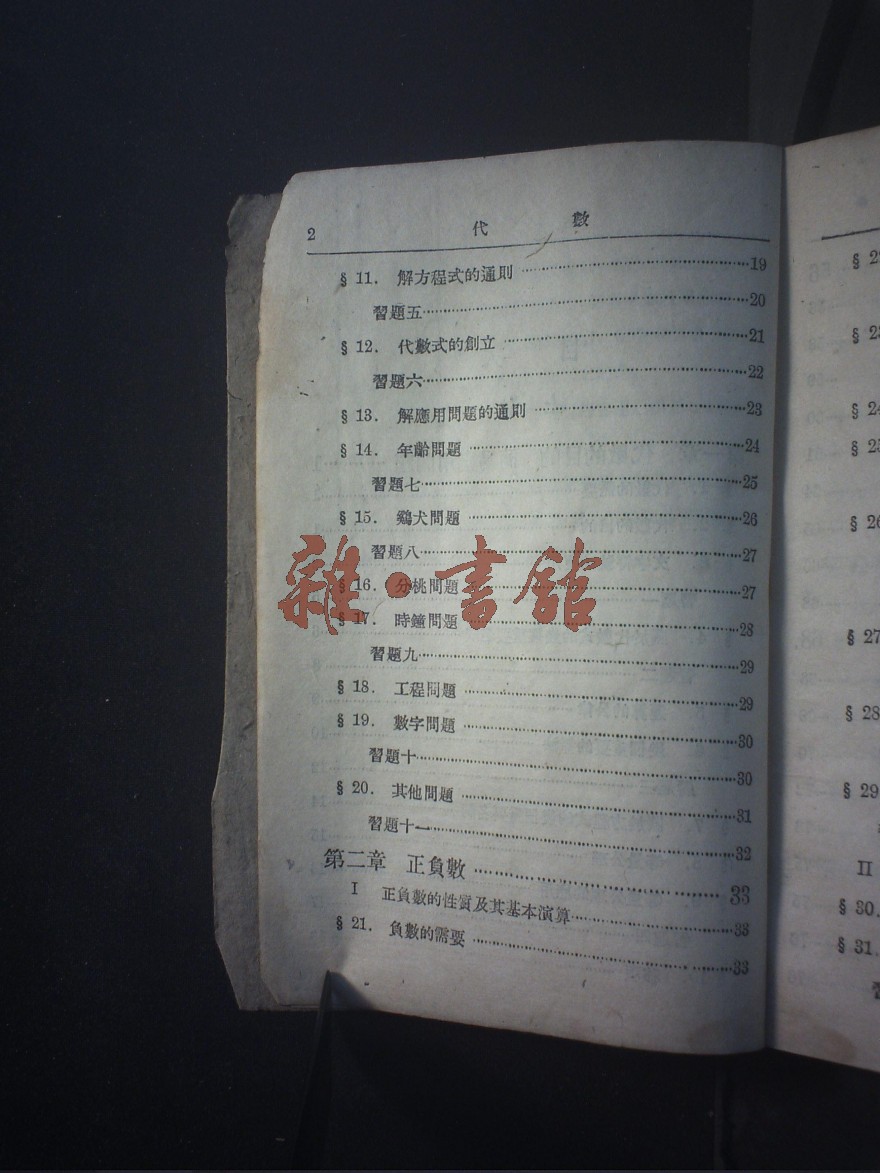 2 代 數
§ 11. 解方程式的通則 ……19
習題五……20
§ 12. 代數式的創立 ……21
習題六……22
§ 13. 解應用問題的通則 ……23
§ 14. 年齡問題 ……24
習題七……25
§ 15. 鷄犬問題 ……26
習題八……27
§ 16. 分桃問題 ……27
§ 17. 時鐘問題 ……28
習題九……29
§ 18. 工程問題 ……29
§ 19. 數字問題 ……30
習題十……30
§ 20. 其他問題 ……31
習題十一……32
第二章 正負數 ……33
I 正負數的性質及其基本演算……33
§ 21. 負數的需要 ……33
雜·書館
§ 24
§ 25
§ 26
§ 27
§ 28
§ 29
II
§ 30.
§ 31.